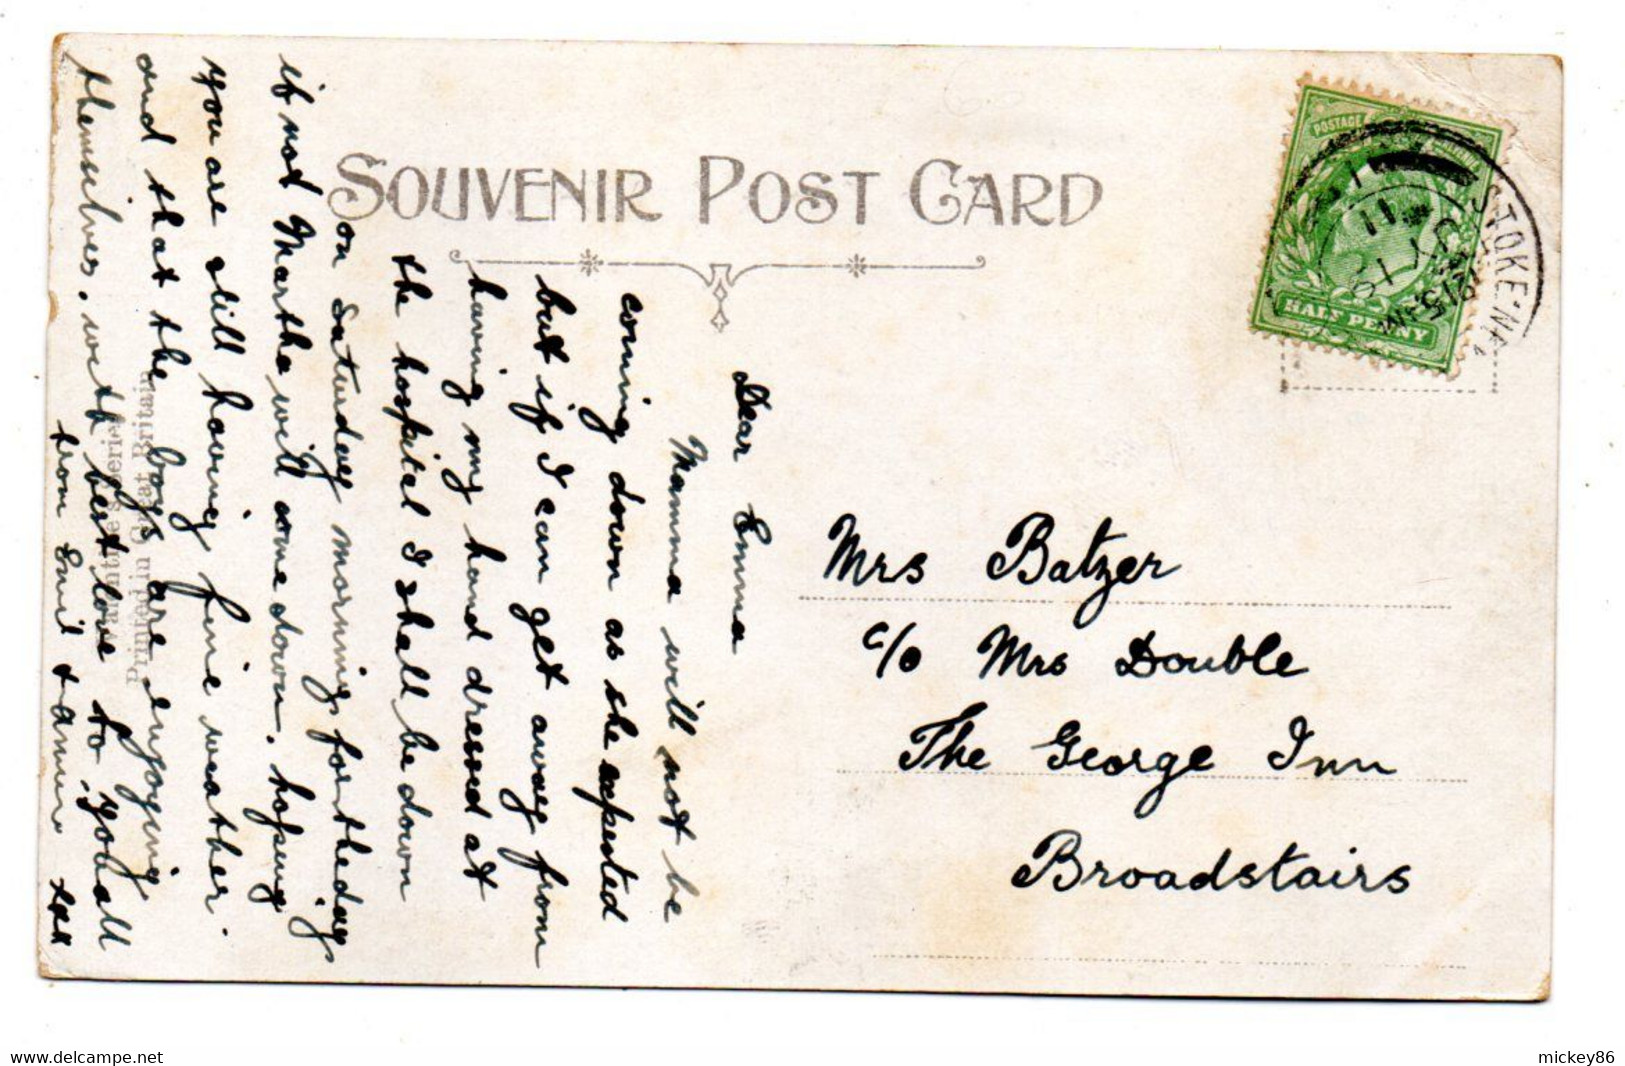 SOUVENIR POST CARD
POSTAGE
HALF PENNY
STOKE·N
Dear Emma
Mamma will not be
coming down as she expected
but if I can get away from
having my hand dressed at
the hospital I shall be down
on Saturday morning, for the day,
if not Martha will come down. hoping
you are still having fine weather.
and that the boys are enjoying
themselves. with best love to you all
from Emil &
xxx
Printed in Great Britain
Mrs Batzer
c/o Mrs Double
The George Inn
Broadstairs
delcampe.net
mickey86